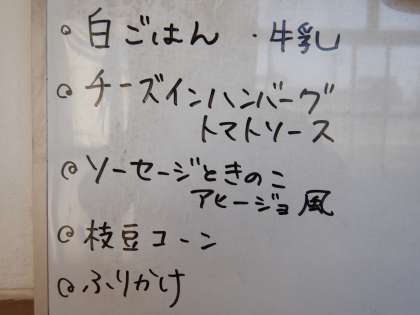 。白ごはん ・牛乳
◎チーズインハンバーグ
トマトソース
◎ソーセージときのこ
アヒージョ風
◎枝豆コーン
◎ふりかけ